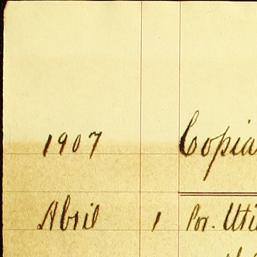 1907 Copia
Abril 1 Por. Uti